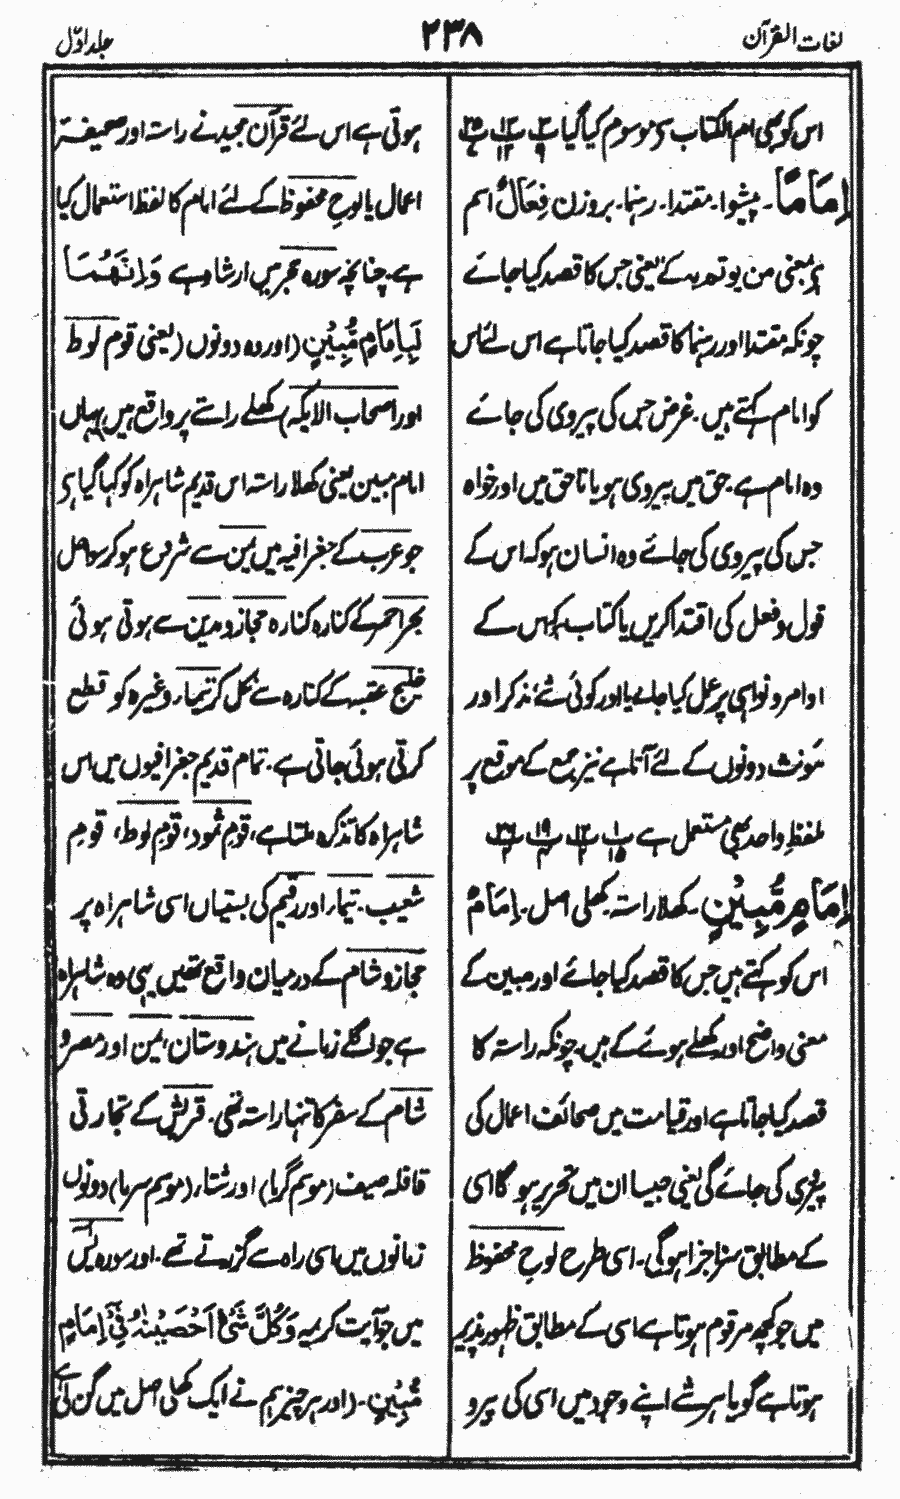 لغات القرآن
۲۳۸
جلد اوّل
اس کو بھی ام الکتاب سے موسوم کیا گیا
اِمَامًا۔ پیشوا۔ مقتدا۔ رہنما۔ بروزن فِعَالٌ اسم
بمعنی من یوتم بہ کے یعنی جس کا قصد کیا جائے
چونکہ مقتدا اور رہنما کا قصد کیا جاتا ہے اس لئے اس
کو امام کہتے ہیں۔ غرض جس کی پیروی کی جائے
وہ امام ہے۔ حق میں پیروی ہو یا ناحق میں اور خواہ
جس کی پیروی کی جائے وہ انسان ہو کہ اس کے
قول وفعل کی اقتدا کریں یا کتاب کہ اس کے
اوامر و نواہی پر عمل کیا جائے یا اور کوئی شے، مذکر اور
مؤنث دونوں کے لئے آتا ہے نیز جمع کے موقع پر
بلفظِ واحد بھی مستعمل ہے
اِمَامٍ مُّبِیْنٍ۔ کھلا راستہ۔ کھلی اصل۔ اِمَامٌ
اس کو کہتے ہیں جس کا قصد کیا جائے اور مبین کے
معنی واضح اور کھلے ہوئے کے ہیں۔ چونکہ راستہ کا
قصد کیا جاتا ہے اور قیامت میں صحائف اعمال کی
پیروی کی جائے گی یعنی جیسا ان میں تحریر ہو گا اسی
کے مطابق سزا جزا ہو گی۔ اسی طرح لوحِ محفوظ
میں جو کچھ مرقوم ہوتا ہے اسی کے مطابق ظہور پذیر
ہوتا ہے گویا ہر شے اپنے وجود میں اسی کی پیرو
ہوتی ہے اس لئے قرآن مجید نے راستہ اور صحیفۂ
اعمال یا لوحِ محفوظ کے لئے امام کا لفظ استعمال کیا
ہے۔ چنانچہ سورہ حجر میں ارشاد ہے وَاِنَّهُمَا
لَبِاِمَامٍ مُّبِیْنٍ (اور وہ دونوں (یعنی قوم لوط
اور اصحاب الایکہ) کھلے راستے پر واقع ہیں یہاں
امام مبین یعنی کھلا راستہ اس قدیم شاہراہ کو کہا گیا ہے
جو عرب کے جغرافیہ میں یمن سے شروع ہو کر سواحل
بحر احمر کے کنارہ کنارہ حجاز و مدین سے ہوتی ہوئی
خلیج عقبہ کے کنارہ سے نکل کر تیماء وغیرہ کو قطع
کرتی ہوئی جاتی ہے۔ تمام قدیم جغرافیوں میں اس
شاہراہ کا تذکرہ ملتا ہے، قومِ ثمود، قومِ لوط، قومِ
شعیب۔ تیماء اور رقیم کی بستیاں اسی شاہراہ پر
حجاز و شام کے درمیان واقع تھیں یہی وہ شاہراہ
ہے جو اگلے زمانے میں ہندوستان، یمن اور مصر و
شام کے سفر کا تنہا راستہ تھی۔ قریش کے تجارتی
قافلہ صیف (موسم گرما) اور شتاء (موسم سرما) دونوں
زمانوں میں اسی راہ سے گزرتے تھے۔ اور سورہ یٰس
میں جو آیت کریمہ وَکُلَّ شَیْءٍ اَحْصَیْنٰهُ فِیْٓ اِمَامٍ
مُّبِیْنٍ۔ (اور ہر چیز ہم نے ایک کھلی اصل میں گن لی ہے